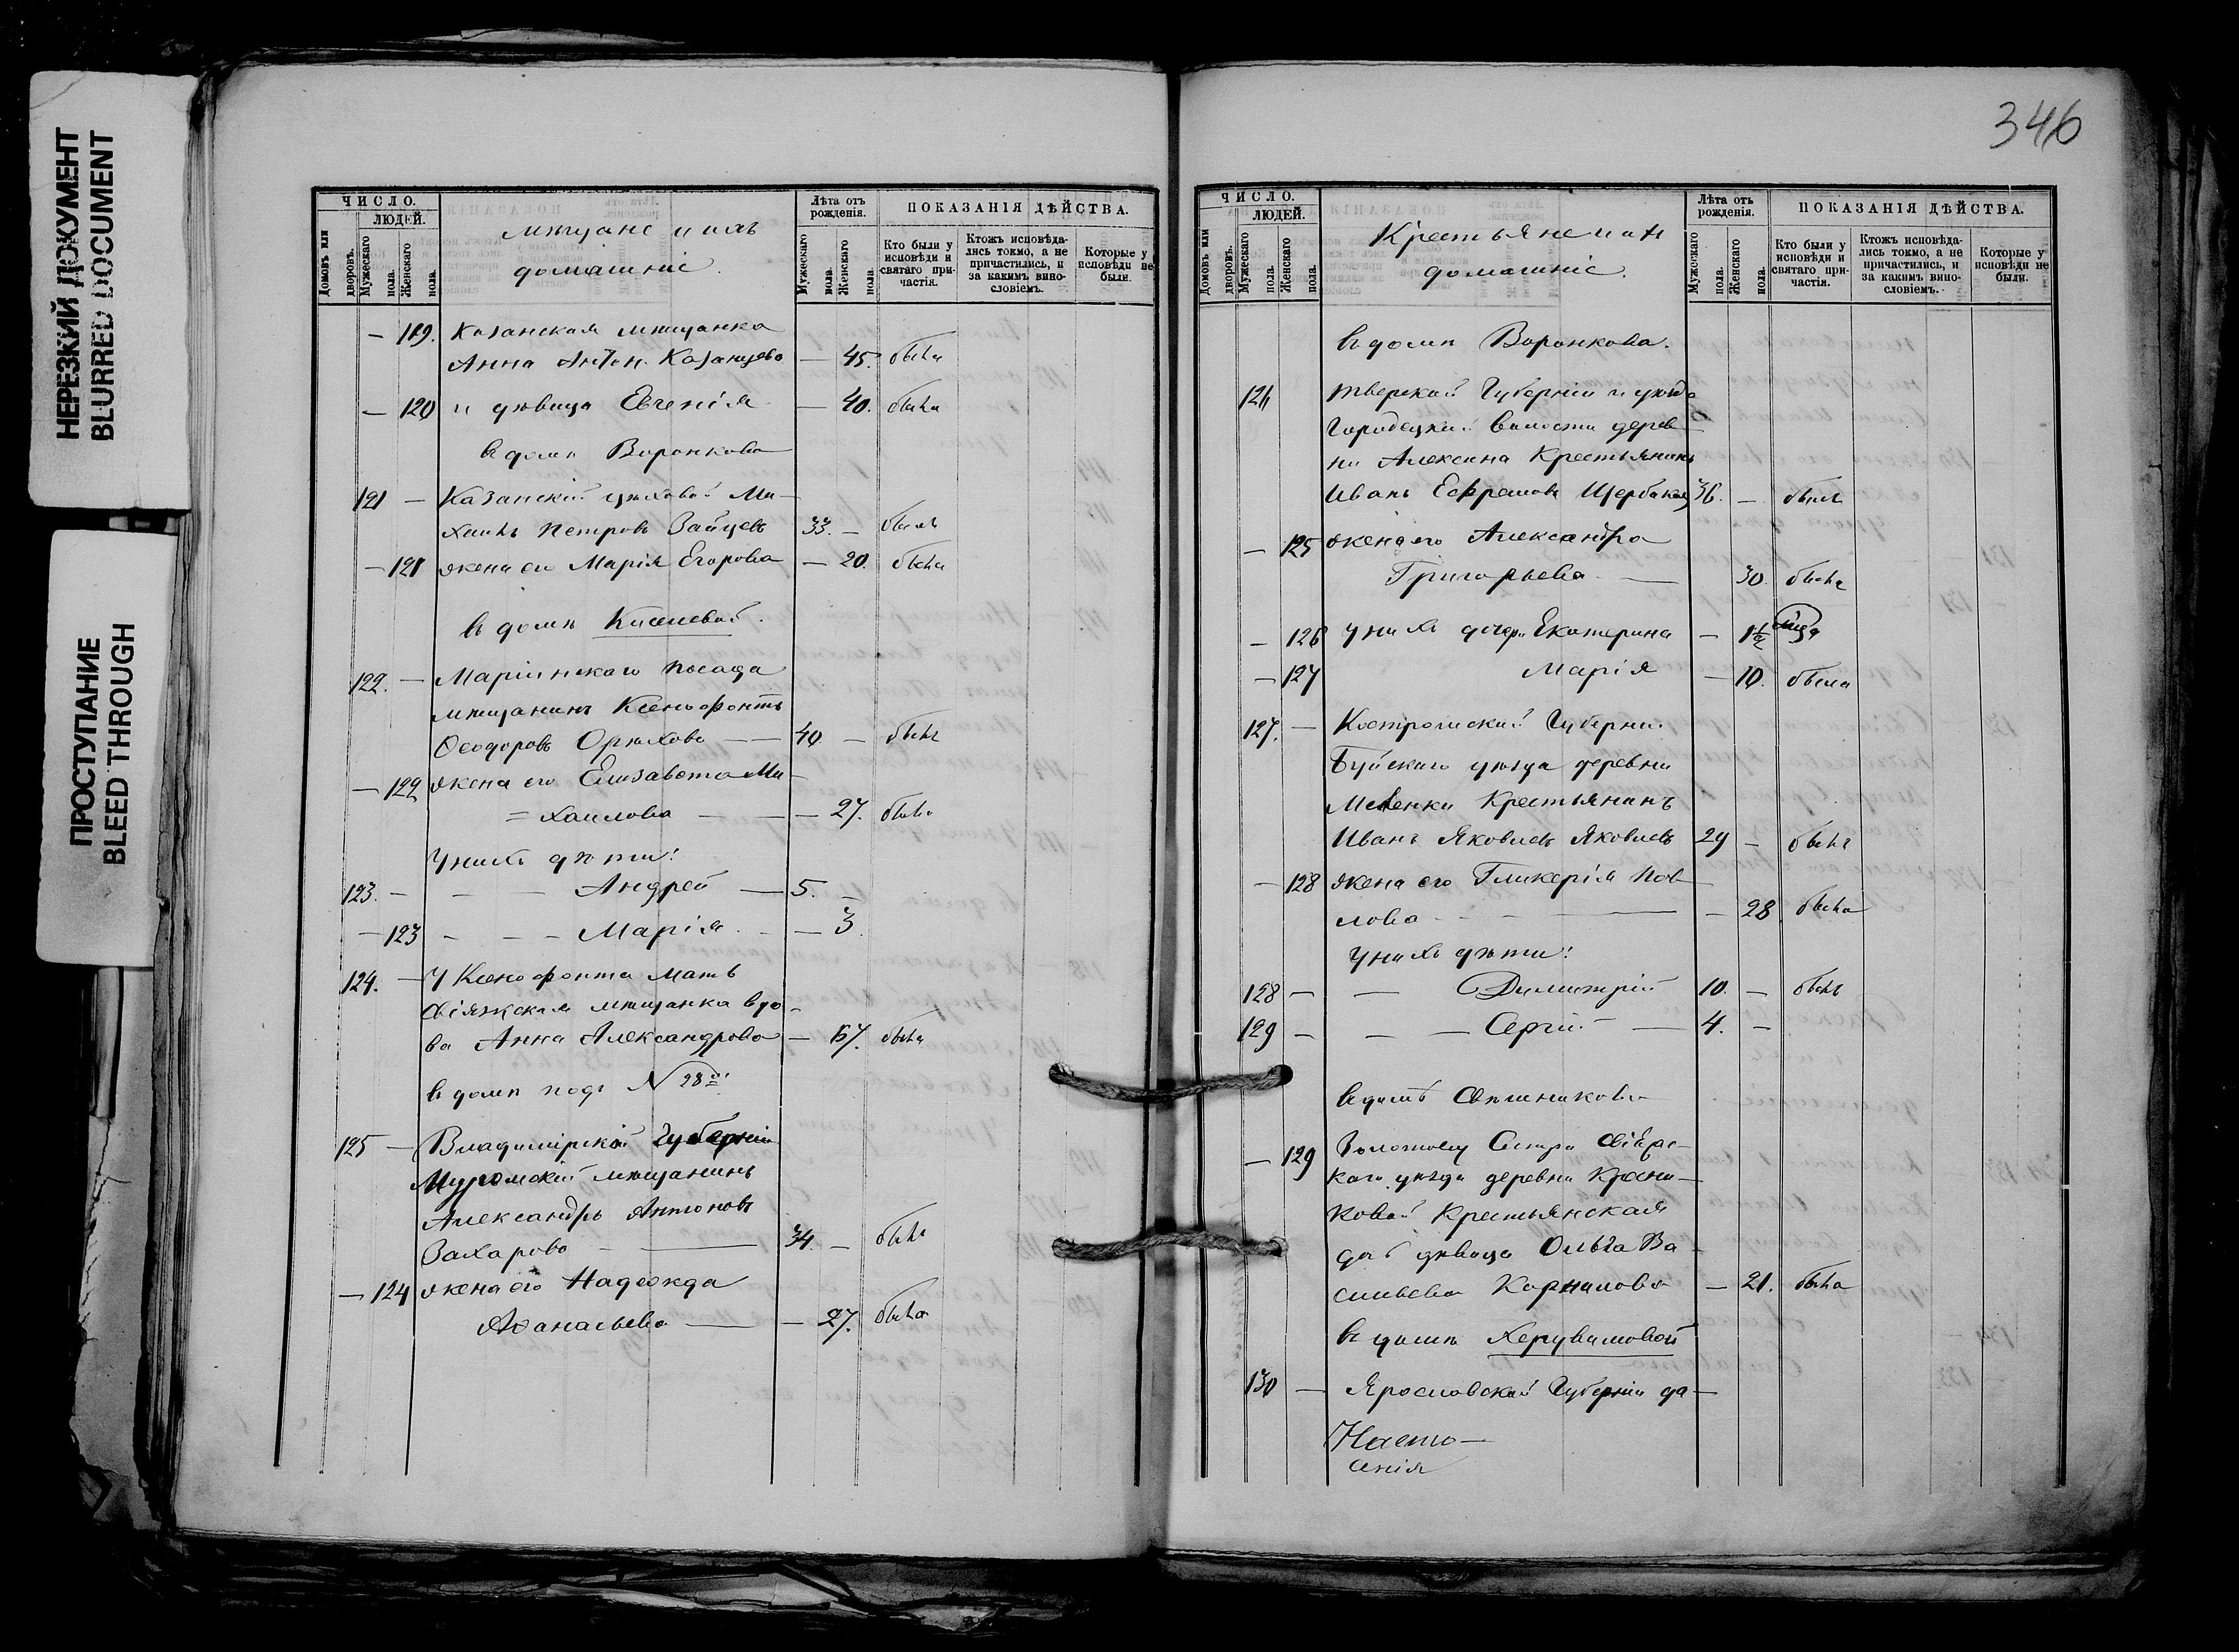 НЕРЕЗКИЙ ДОКУМЕНТ
BLURRED DOCUMENT
ПРОСТУПАНИЕ
BLEED THROUGH
ЧИСЛО.
ЛЮДЕЙ.
Домовъ или дворовъ.
Мужескаго пола.
Женскаго пола.
Мѣщане и ихъ
домашніе.
Лѣта отъ рожденія.
Мужескаго пола.
Женскаго пола.
ПОКАЗАНІЯ ДѢЙСТВА.
Кто были у исповѣди и святаго причастія.
Ктожъ исповѣдались токмо, а не причастились, и за какимъ винословіемъ.
Которые у исповѣди не были.
— 119. Казанская мѣщанка
Анна Антон. Казанцева — 45. была
— 120 и дѣвица Евгенія — 40. была
въ домѣ Воронкова
121 — Казанскій цеховой Ми-
хаилъ Петровъ Зайцевъ 33. — былъ
— 121 жена его Марія Егорова — 20. была
въ домѣ Киселевой.
122. — Маріинскаго посада
мѣщанинъ Ксенофонтъ
Ѳеодоровъ Орѣхово — 40 — былъ
— 122 жена его Елизавета Ми-
= хаилова — — 27. была
У нихъ дѣти:
123. — — — Андрей — 5. —
— 123 — — — Марія — — 3.
124. — У Ксенофонта мать
Свіяжская мѣщанка вдо-
ва Анна Александрова — 67. была
въ домѣ подъ № 28ой
125 — Владимірской Губерніи
Муромскій мѣщанинъ
Александръ Антоновъ
Захарово — 34. — былъ
— 124 жена его Надежда
Аѳанасьева — — 27. была
346
ЧИСЛО.
ЛЮДЕЙ.
Домовъ или дворовъ.
Мужескаго пола.
Женскаго пола.
Крестьяне и ихъ
домашніе.
Лѣта отъ рожденія.
Мужескаго пола.
Женскаго пола.
ПОКАЗАНІЯ ДѢЙСТВА.
Кто были у исповѣди и святаго причастія.
Ктожъ исповѣдались токмо, а не причастились, и за какимъ винословіемъ.
Которые у исповѣди не были.
въ домѣ Воронкова.
126 Тверской Губерніи и уѣзда
Городецкой волости дерев-
ни Алексина Крестьянинъ
Иванъ Ефремовъ Щербаковъ 36. — былъ
— 125 жена его Александра
Григорьева — 30. была
— 126 У нихъ дочери Екатерина — 1½
— 127 Марія — 10. была
127. — Костромской Губерніи
Буйскаго уѣзда деревни
Крестьянинъ
Иванъ Яковлевъ Яковлевъ 29 — былъ
— 128 жена его Гликерія Пав-
лова — — 28 была
У нихъ дѣти:
128 — — Димитрій 10. — былъ
129 — — — Сергій — 4. —
въ домѣ
— 129
каго уѣзда деревни Красни-
ковой Крестьянская
дѣвица Ольга Ва-
сильева Корнилова — 21. была
въ домѣ Херувимовой
130 — Ярославской Губерніи да-